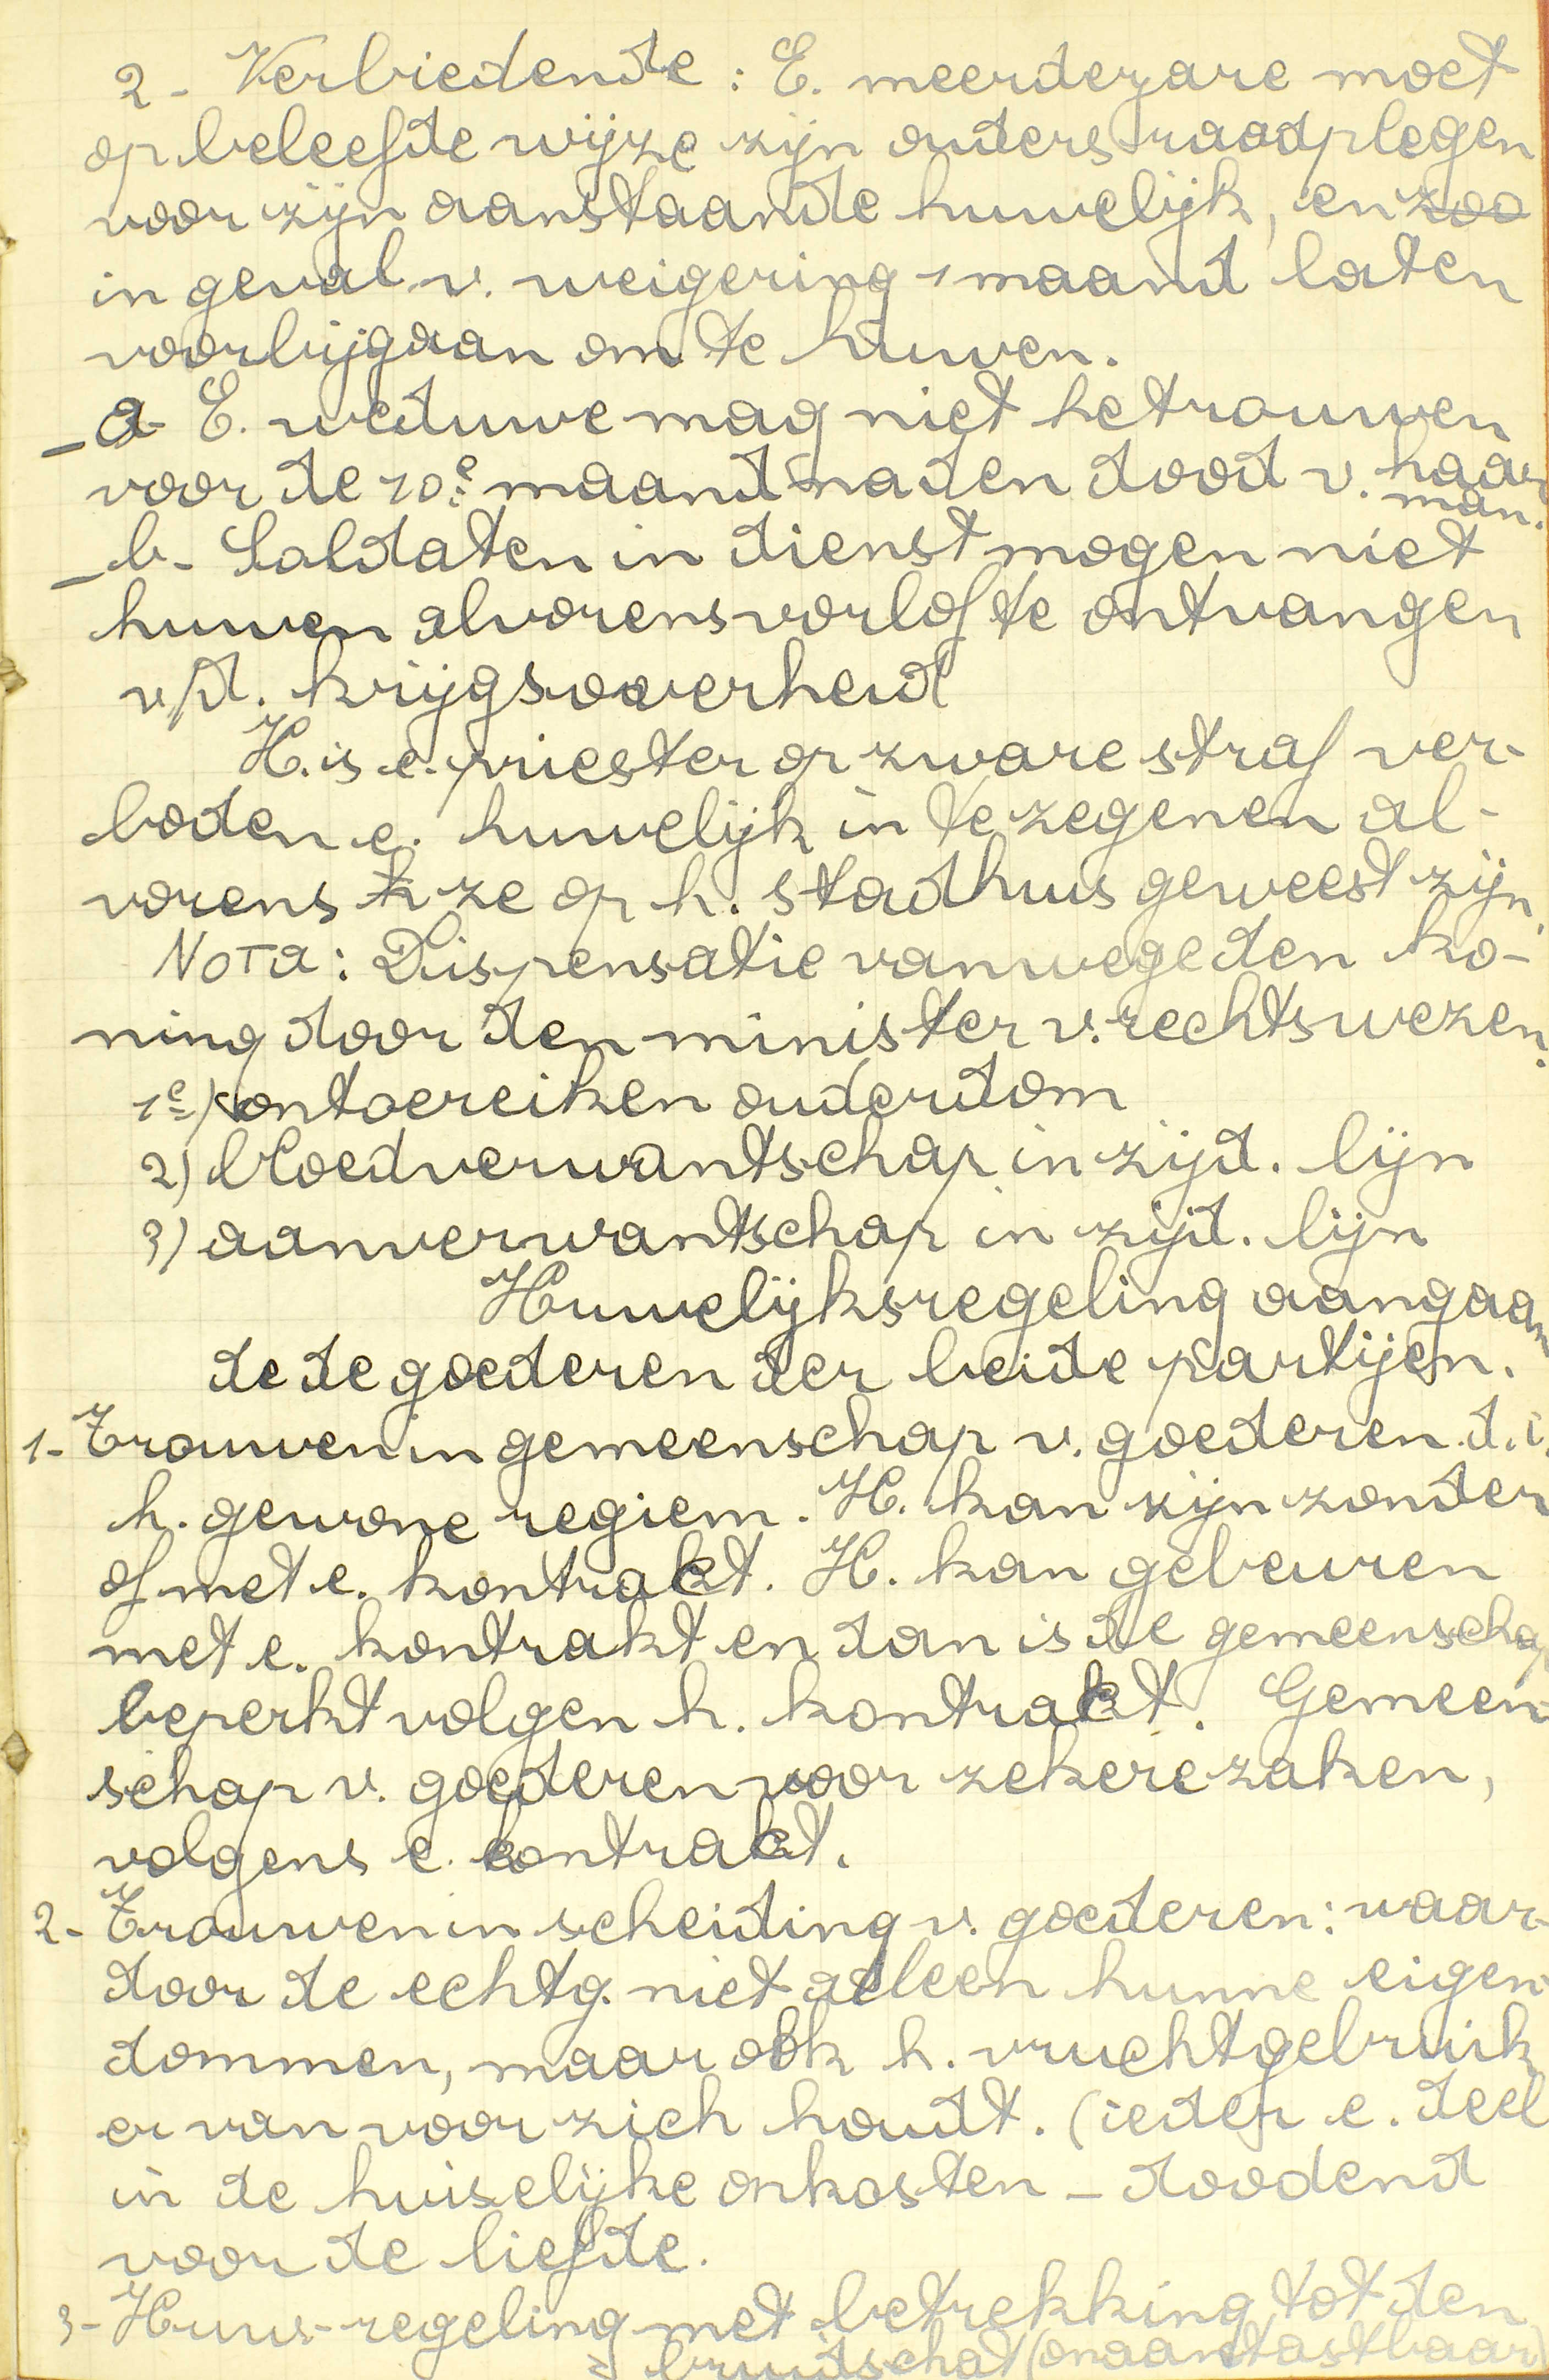 2 - Verbiedende : E. meerderjare moet
op beleefde wijze zijn ouders raadplegen
voor zijn aanstaande huwelijk, en zoo
in geval v. weigering 1 maand laten
voorbijgaan om te huwen.
- a - E. weduwe mag niet hetrouwen
voor de 10e maand na den dood v. haar
man.
- b - Soldaten in dienst mogen niet
huwen alvorens vorlof te ontvangen
v/d. krijgsoverheid
H. is e. priester op zware straf ver-
boden e. huwelijk in te zegenen al-
vorens ze op h. stadhuis geweest zijn.
NOTA : Dispensatie vanwege den ko-
ning door den minister v. rechtswezen.
1e) ontoereiken ouderdom
2) bloedverwantschap in zijd. lijn
3) aanverwantschap in zijd. lijn
Huwelijksregeling aangaan
de de goederen der beide partijen.
1- Trouwen in gemeenschap v. goederen. d.i.
h. gewone regiem. H. kan zijn zonder
of met e. kontrakt. H. kan gebeuren
met e. kontrakt en dan is de gemeenschap
beperkt volgen h. kontrakt. Gemeen-
schap v. goederen voor zekere zaken,
volgens e. kontrakt.
2- Trouwen in scheiding v. goederen: waar-
door de echtg. niet alleen hunne eigen-
dommen, maar ook h. vruchtgebruik
er van voor zich houdt. (ieder e. deel
in de huiselijke onkosten - doodend
voor de liefde.
3- Huw-regeling met betrekking tot den
bruidschat (onaantastbaar)